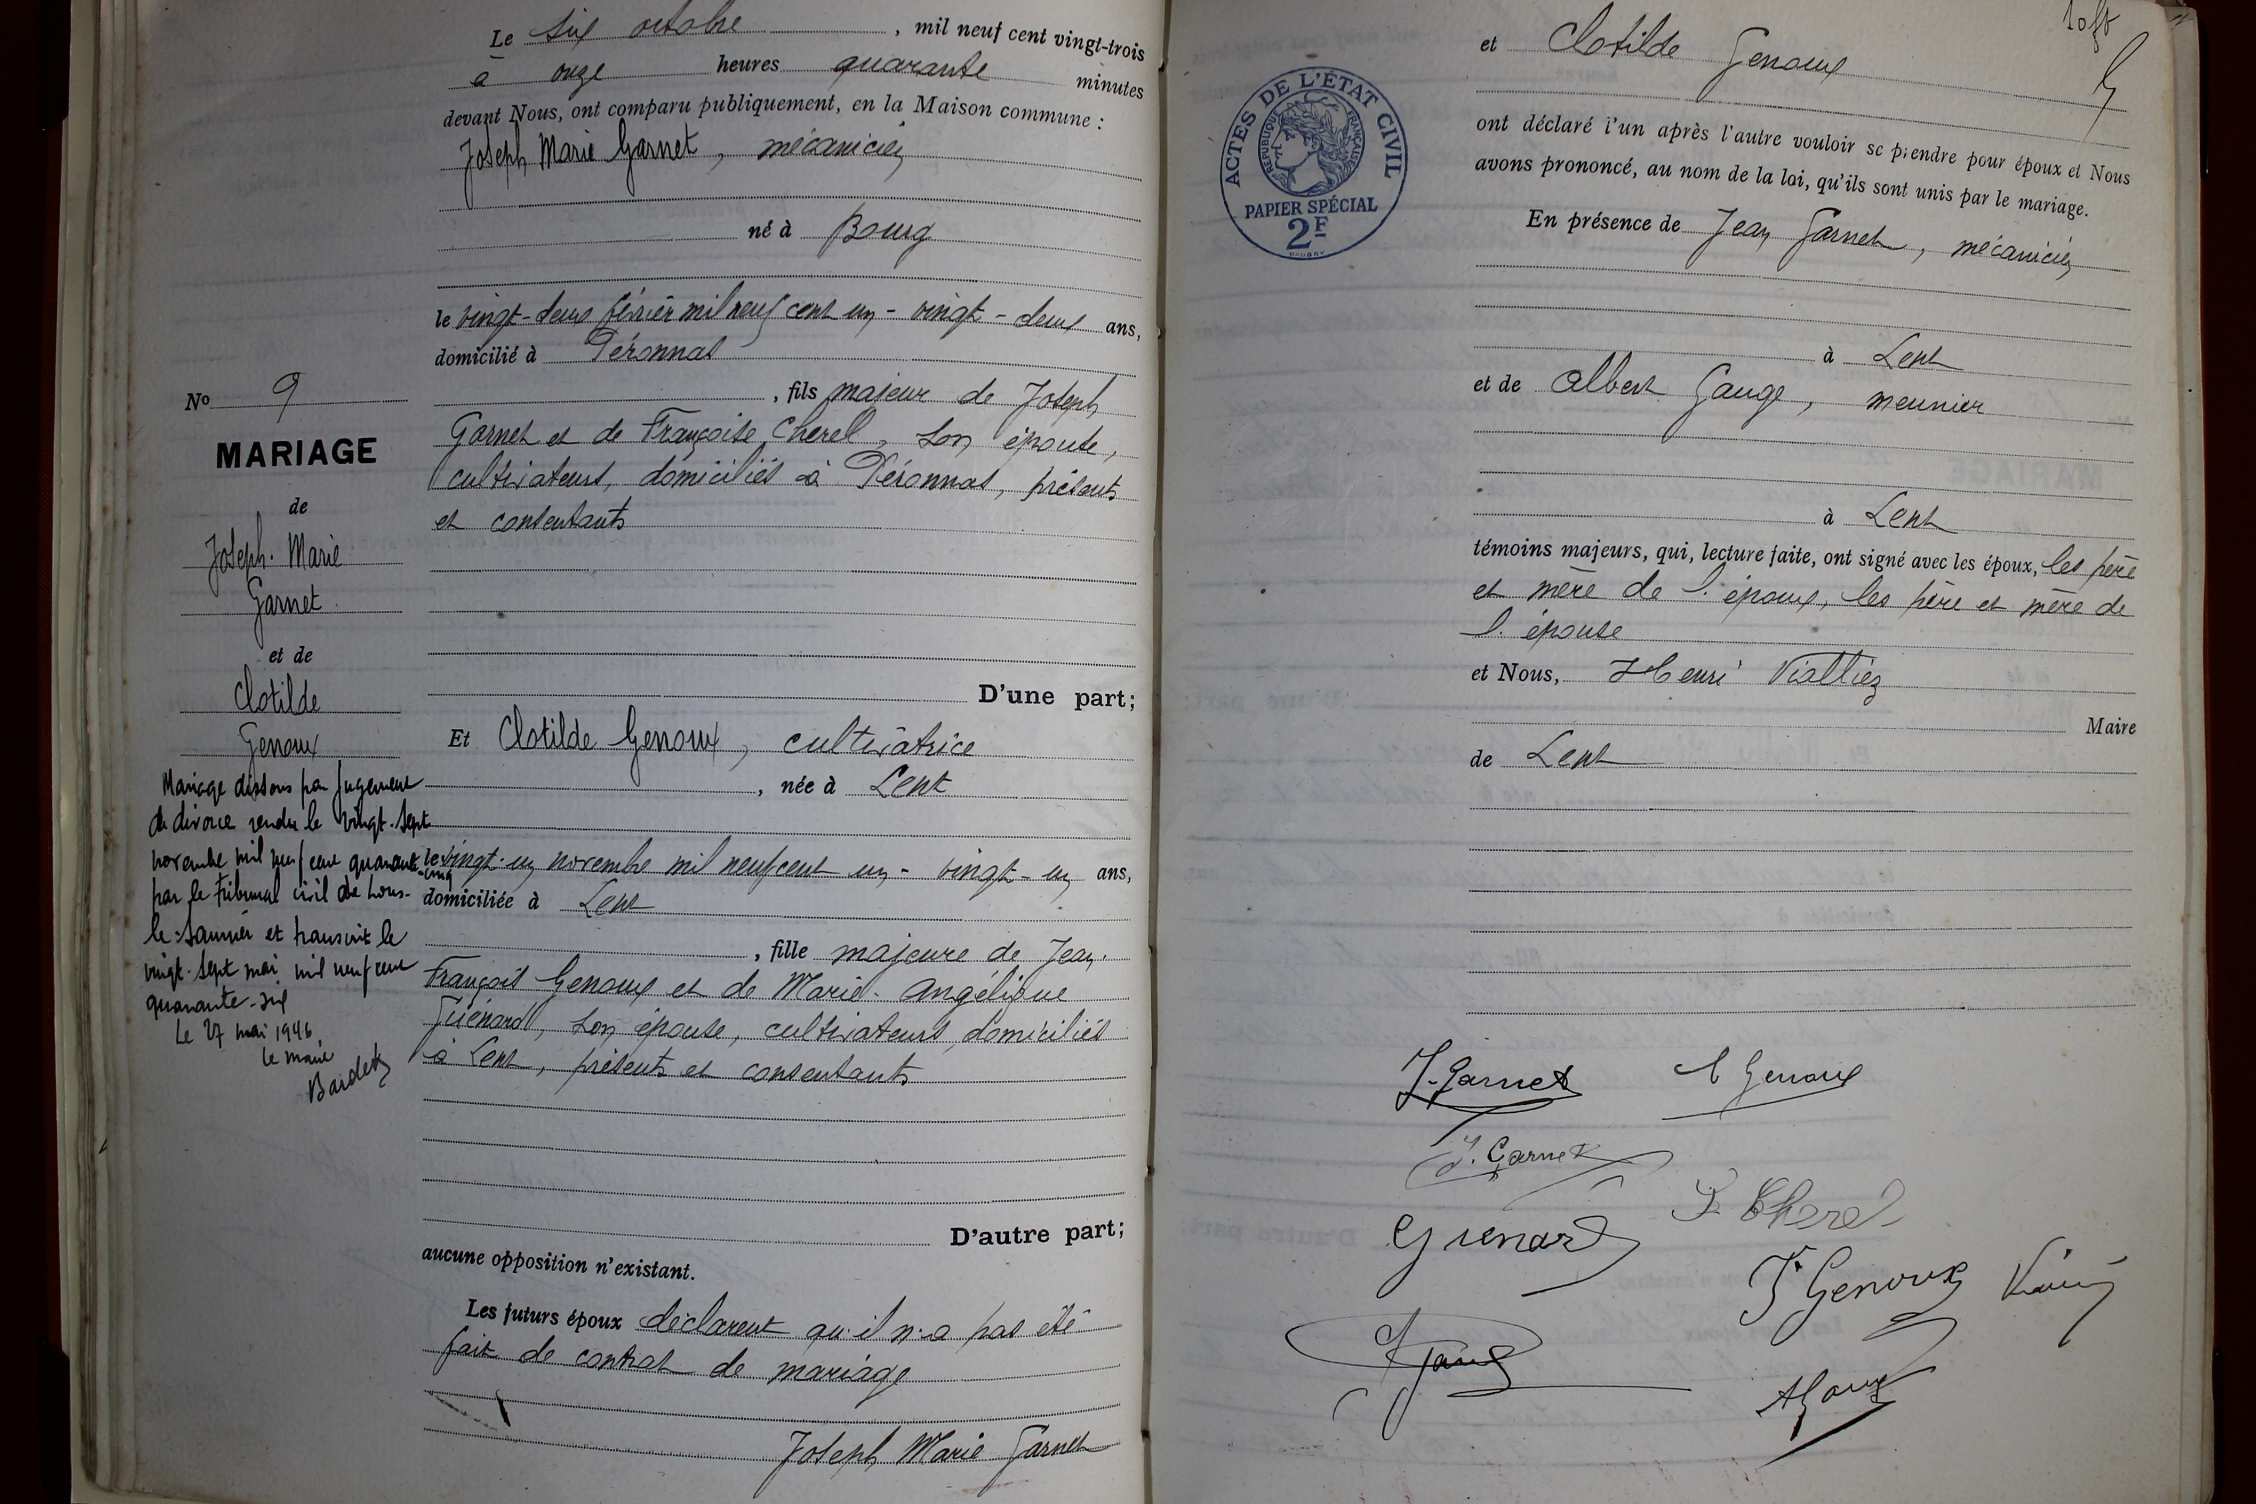 Le six octobre, mil neuf cent vingt-trois
à onze heures quarante minutes
devant Nous, ont comparu publiquement, en la Maison commune :
Joseph Marie Garnet, mécanicien
né à Bourg
le vingt-deux février mil neuf cent un - vingt-deux ans,
domicilié à Péronnas
, fils majeur de Joseph
Garnet et de Françoise Cherel, son épouse,
cultivateurs, domiciliés à Péronnas, présents
et consentants
D'une part;
Et Clotilde Genoux, cultivatrice
, née à Lent
le vingt-un novembre mil neuf cent un - vingt-un ans,
domiciliée à Lent
, fille majeure de Jean-
François Genoux et de Marie-Angélique
Guénard, son épouse, cultivateurs, domiciliés
à Lent, présents et consentants
D'autre part;
aucune opposition n'existant.
Les futurs époux déclarent qu'il n'a pas été
fait de contrat de mariage
Joseph Marie Garnet
No 9
MARIAGE
de
Joseph-Marie
Garnet
et de
Clotilde
Genoux
Mariage dissous par jugement
de divorce rendu le vingt-sept
novembre mil neuf cent quarante-cinq
par le Tribunal civil de Lons-
le-Saunier et transcrit le
vingt-sept mai mil neuf cent
quarante-six
Le 27 mai 1946
Le maire
et Clotilde Genoux
ACTES DE L'ÉTAT CIVIL
RÉPUBLIQUE FRANÇAISE
PAPIER SPÉCIAL
2F
ont déclaré l'un après l'autre vouloir se prendre pour époux et Nous
avons prononcé, au nom de la loi, qu'ils sont unis par le mariage.
En présence de Jean Garnet, mécanicien
à Lent
et de Albert Gauge, meunier
à Lent
témoins majeurs, qui, lecture faite, ont signé avec les époux, les père
et mère de l'époux, les père et mère de
l'épouse
et Nous, Henri
Maire
de Lent
J. Garnet
C Genoux
J. Garnet
F. Cherel
Guénard
F. Genoux